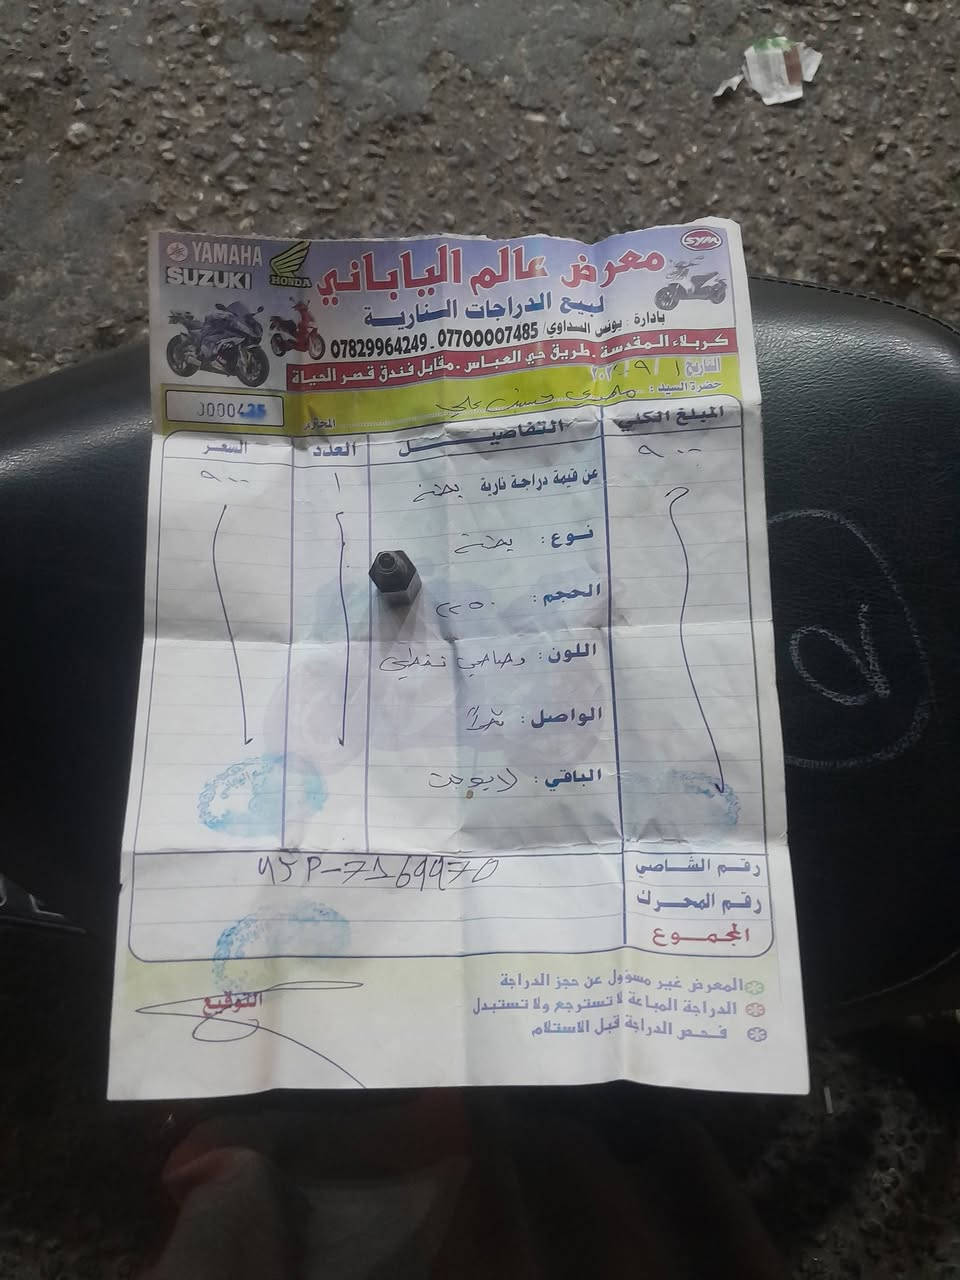 YAMAHA
SUZUKI
HONDA
SYM
معرض عالم الياباني
لبيع الدراجات النارية
بادارة : يونس السداوي / 07700007485 - 07829964249
كربلاء المقدسة . طريق حي العباس . مقابل فندق قصر الحياة
التاريخ ١ / ٩ /
حضرة السيد : مهدي حسين علي المحترم
المبلغ الكلي التفاصيل العدد السعر
٩٠٠ عن قيمة دراجة نارية ١ ٩٠٠
نوع :
الحجم : ٢٥٠
اللون : رصاصي نفطي
الواصل : نقداً
الباقي : لا يوجد
رقم الشاصي
رقم المحرك
المجموع
المعرض غير مسؤول عن حجز الدراجة
الدراجة المباعة لا تسترجع ولا تستبدل
فحص الدراجة قبل الاستلام
التوقيع